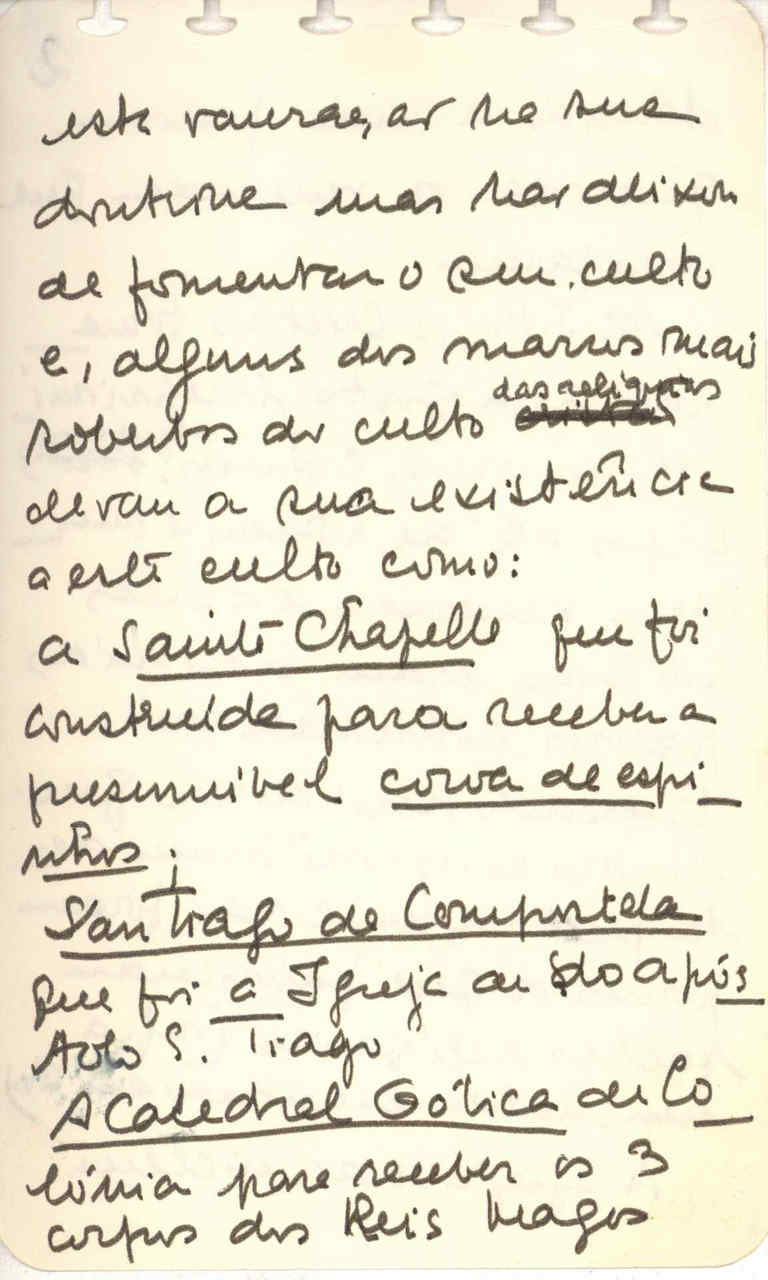 esta veneração na sua
doutrina mas não deixou
de fomentar o seu culto
e, alguns dos marcos mais
soberbos do culto das relíquias
devem a sua existência
a este culto como:
a Sainte Chapelle que foi
construída para receber a
presumível coroa de espi_
nhos;
Santiago de Compostela
que foi a Igreja do após_
tolo S. Tiago
A Catedral Gótica de Co_
lónia para receber os 3
corpos dos Reis Magos